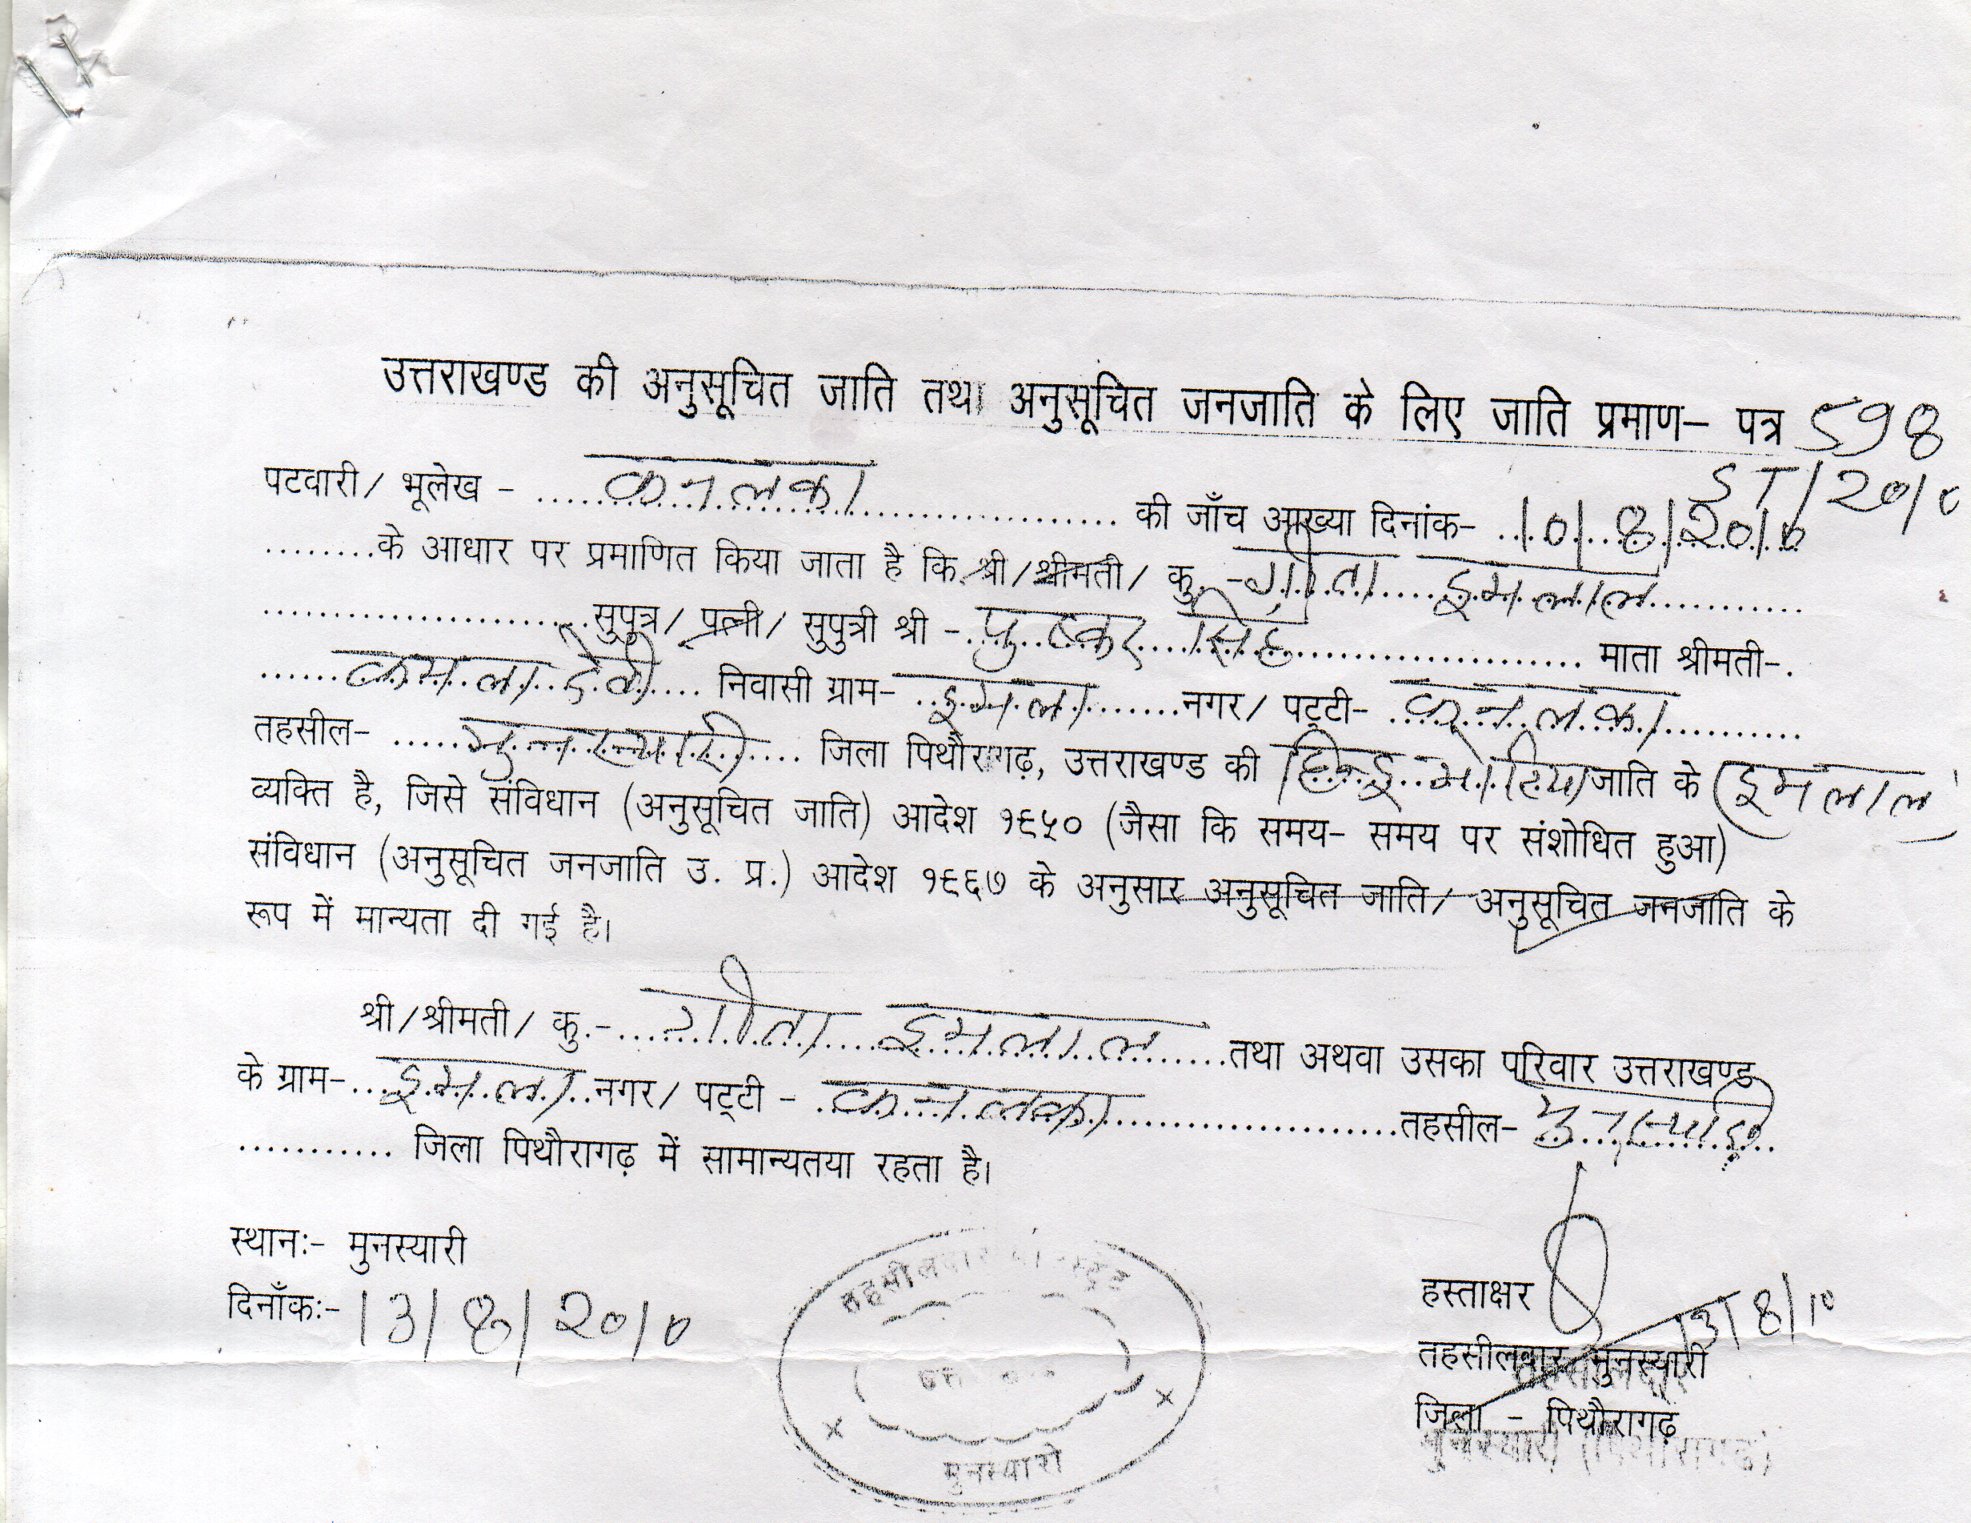 उत्तराखण्ड की अनुसूचित जाति तथा अनुसूचित जनजाति के लिए जाति प्रमाण– पत्र 598
ST/2010
पटवारी/ भूलेख - .....कनलका............................ की जाँच आख्या दिनांक- ..10/8/2010
........के आधार पर प्रमाणित किया जाता है कि श्री/श्रीमती/ कु.-गीता.....इमलाल...........
..........................सुपुत्र/ पत्नी/ सुपुत्री श्री -..पुष्कर....सिंह........................ माता श्रीमती-.
......कमला..देवी.... निवासी ग्राम- ..इमला.......नगर/ पट्टी- .कनलका...........
तहसील- .....मुनस्यारी.... जिला पिथौरागढ़, उत्तराखण्ड की हिन्दू भोटिया जाति के (इमलाल)
व्यक्ति है, जिसे संविधान (अनुसूचित जाति) आदेश १९५० (जैसा कि समय- समय पर संशोधित हुआ)
संविधान (अनुसूचित जनजाति उ. प्र.) आदेश १९६७ के अनुसार अनुसूचित जाति/ अनुसूचित जनजाति के
रूप में मान्यता दी गई है।
श्री/श्रीमती/ कु.-...गीता....इमलाल......तथा अथवा उसका परिवार उत्तराखण्ड
के ग्राम-...इमला..नगर/ पट्टी - .कनलका......................तहसील- मुनस्यारी..
............ जिला पिथौरागढ़ में सामान्यतया रहता है।
स्थानः- मुनस्यारी
दिनाँकः- 13/8/2010
हस्ताक्षर
13/8/10
तहसीलदार मुनस्यारी
जिला - पिथौरागढ़
तहसीलदार
मुनस्यारी (पिथौरागढ़)
तहसीलदार
मुनस्यारी